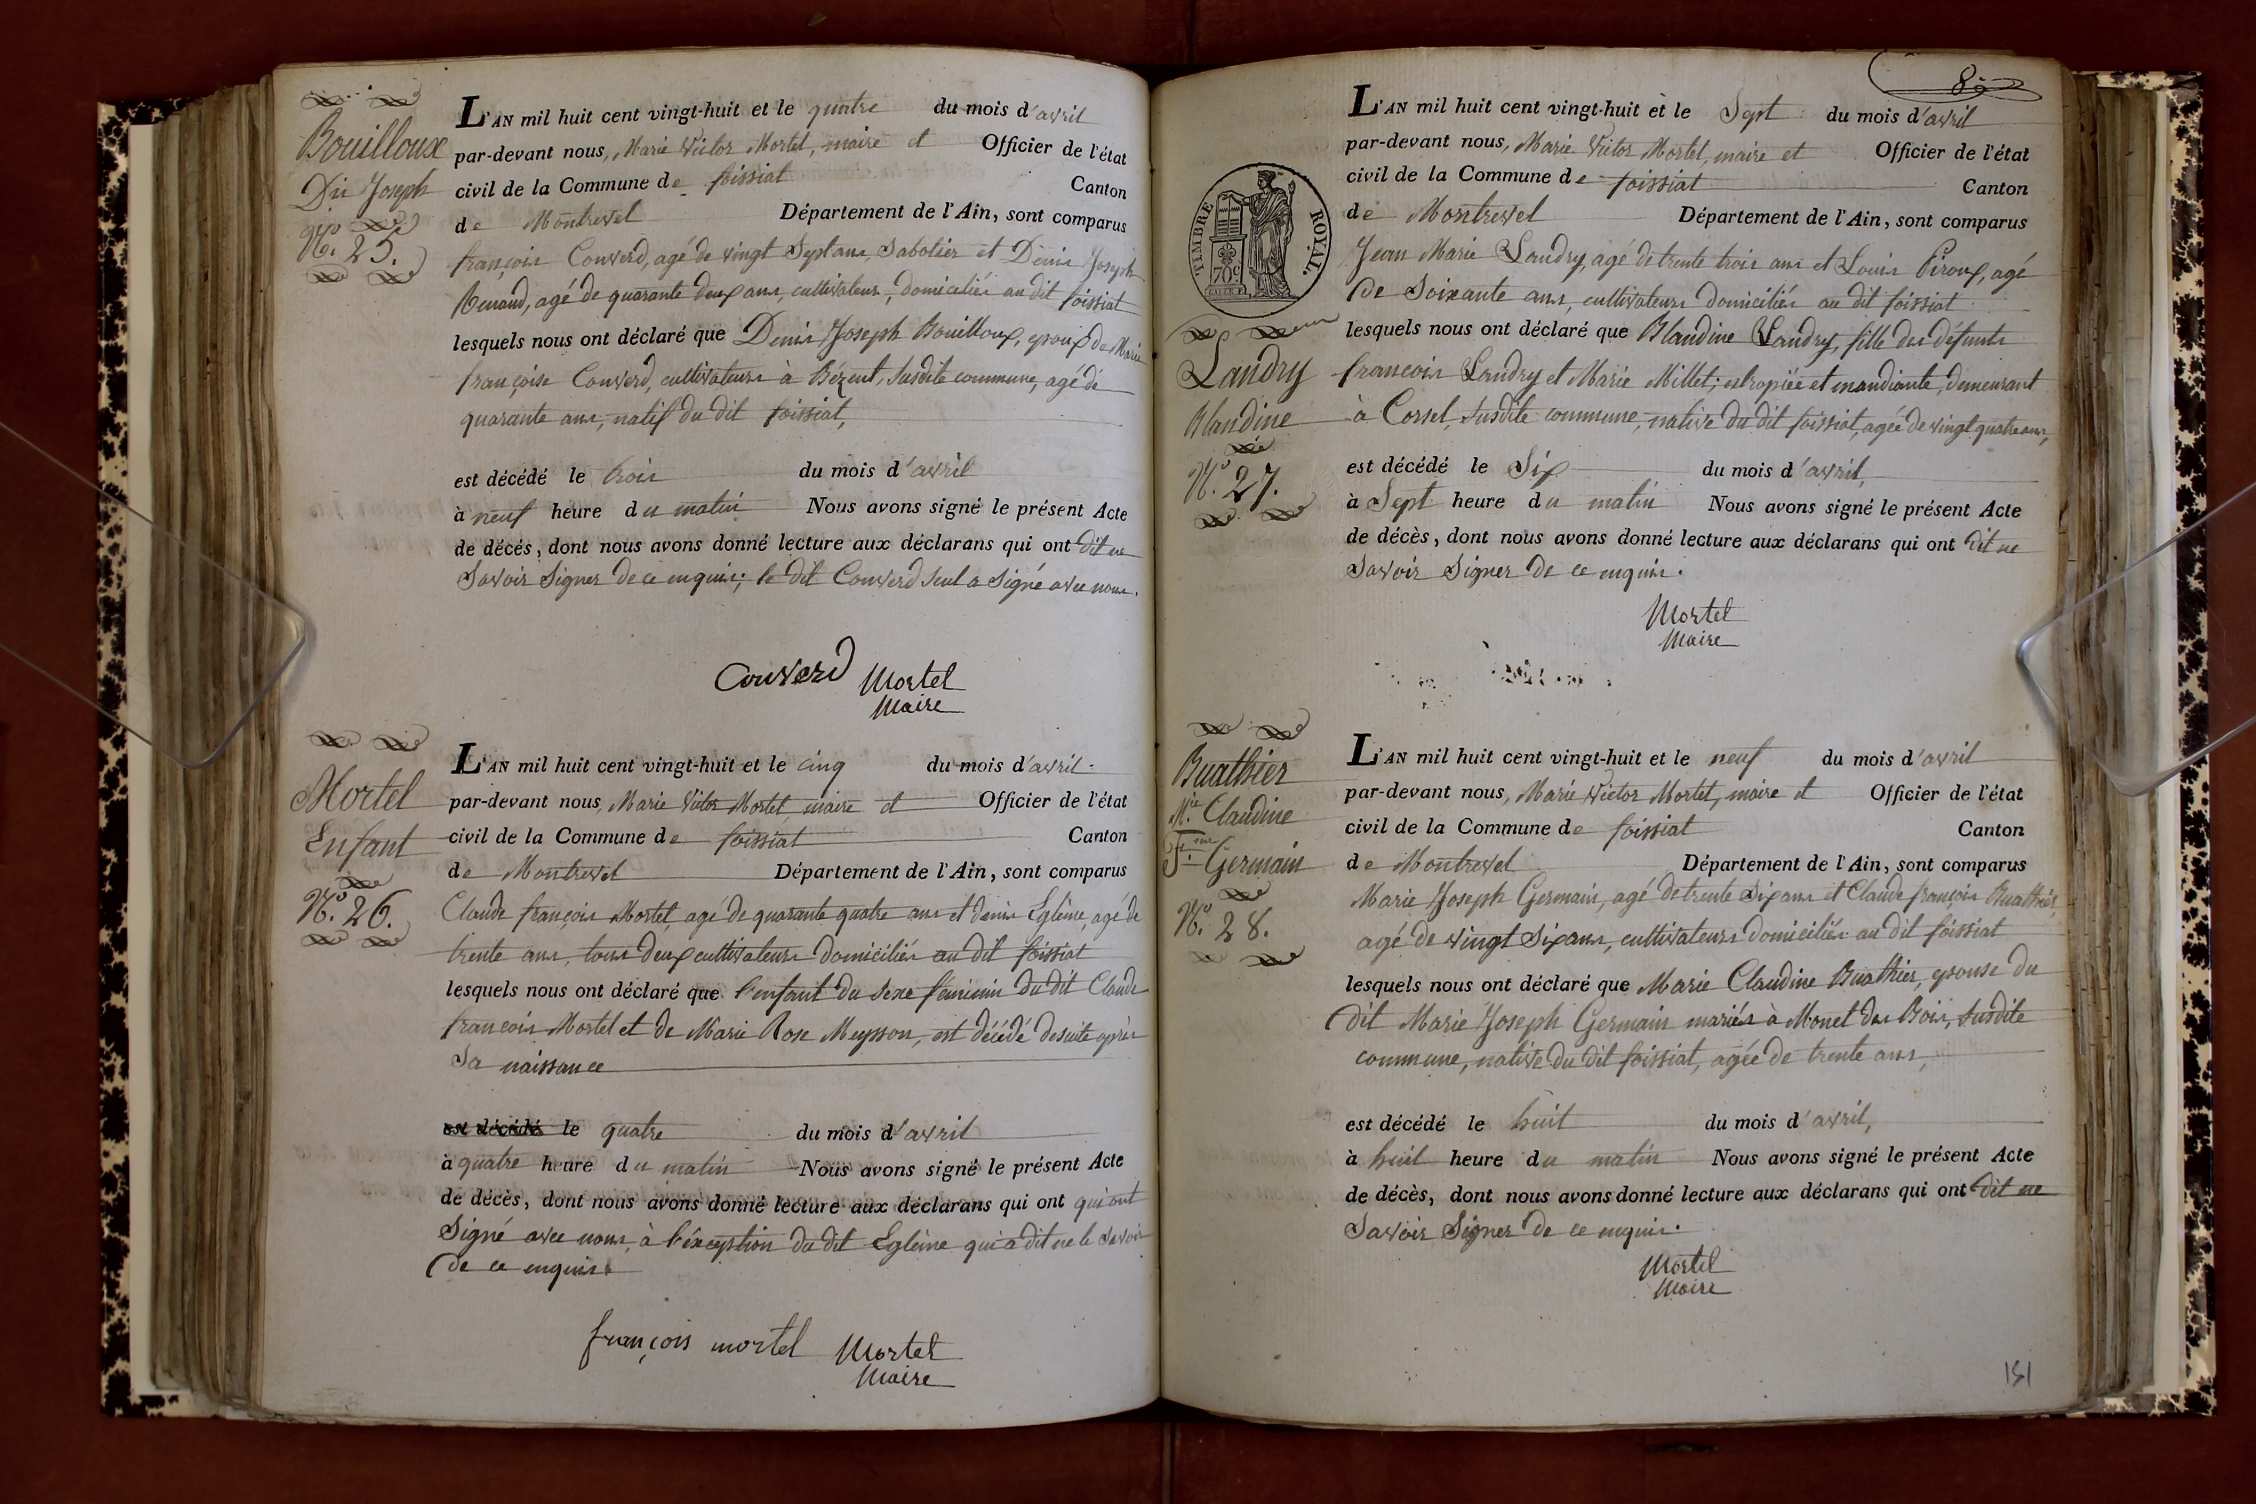 Bouilloux
Dis Joseph
N.° 25.
L'AN mil huit cent vingt-huit et le quatre du mois d'avril
par-devant nous, Marie Victor Mortel, maire et Officier de l'état
civil de la Commune de foissiat Canton
de Montrevel Département de l'Ain, sont comparus
françois Converd, agé de vingt Sept ans, Sabotier et Denis Joseph
Renaud, agé de quarante deux ans, cultivateurs, domiciliés au dit foissiat
lesquels nous ont déclaré que Denis Joseph Bouilloux, epoux de Marie
françoise Converd, cultivateurs à Bézent, Susdite commune, agé de
quarante ans, natif du dit foissiat,
est décédé le trois du mois d'avril
à neuf heure du matin Nous avons signé le présent Acte
de décés, dont nous avons donné lecture aux déclarans qui ont dit ne
Savoir Signer de ce enquis; le dit Converd seul a signé avec nous.
Converd Mortel
Maire
Mortel
Enfant
N.° 26.
L'AN mil huit cent vingt-huit et le cinq du mois d'avril
par-devant nous, Marie Victor Mortel, maire et Officier de l'état
civil de la Commune de foissiat Canton
de Montrevel Département de l'Ain, sont comparus
Claude françois Mortel, agé de quarante quatre ans et denis Egleine, agé de
trente ans, tous deux cultivateurs domiciliés au dit foissiat
lesquels nous ont déclaré que l'enfant du sexe féminin du dit Claude
françois Mortel et de Marie Rose Meysson, est décédé desuite après
Sa naissance
est décédé le quatre du mois d'avril
à quatre heure du matin Nous avons signé le présent Acte
de décès, dont nous avons donné lecture aux déclarans qui ont qui ont
Signé avec nous, à l'exception du dit Egleine qui a dit ne le Savoir
de ce enquis.
françois mortel Mortel
Maire
80
L'AN mil huit cent vingt-huit et le Sept du mois d'avril
par-devant nous, Marie Victor Mortel, maire et Officier de l'état
civil de la Commune de foissiat Canton
de Montrevel Département de l'Ain, sont comparus
TIMBRE ROYAL.
70c
Landry
Blandine
N.° 27.
Jean Marie Landry, agé de trente trois ans et Louis Piroux, agé
de Soixante ans, cultivateurs domiciliés au dit foissiat
lesquels nous ont déclaré que Blandine Landry, fille des défunts
françois Landry et Marie Millet; estropiée et mandiante, demeurant
à Corsel, Susdite commune, native du dit foissiat, agée de vingt quatre ans,
est décédé le Six du mois d'avril,
à Sept heure du matin Nous avons signé le présent Acte
de décès, dont nous avons donné lecture aux déclarans qui ont dit ne
Savoir Signer de ce enquis.
Mortel
Maire
Buathier
M.ie Claudine
F.me Germain
N.° 28.
L'AN mil huit cent vingt-huit et le neuf du mois d'avril
par-devant nous, Marie Victor Mortel, maire et Officier de l'état
civil de la Commune de foissiat Canton
de Montrevel Département de l'Ain, sont comparus
Marie Joseph Germain, agé de trente Six ans et Claude françois Buathier,
agé de vingt Six ans, cultivateurs domiciliés au dit foissiat
lesquels nous ont déclaré que Marie Claudine Buathier, epouse du
dit Marie Joseph Germain mariés à Monet des Bois, susdite
commune, native du dit foissiat, agée de trente ans,
est décédé le huit du mois d'avril,
à huit heure du matin Nous avons signé le présent Acte
de décès, dont nous avons donné lecture aux déclarans qui ont dit ne
Savoir Signer de ce enquis.
Mortel
Maire
151